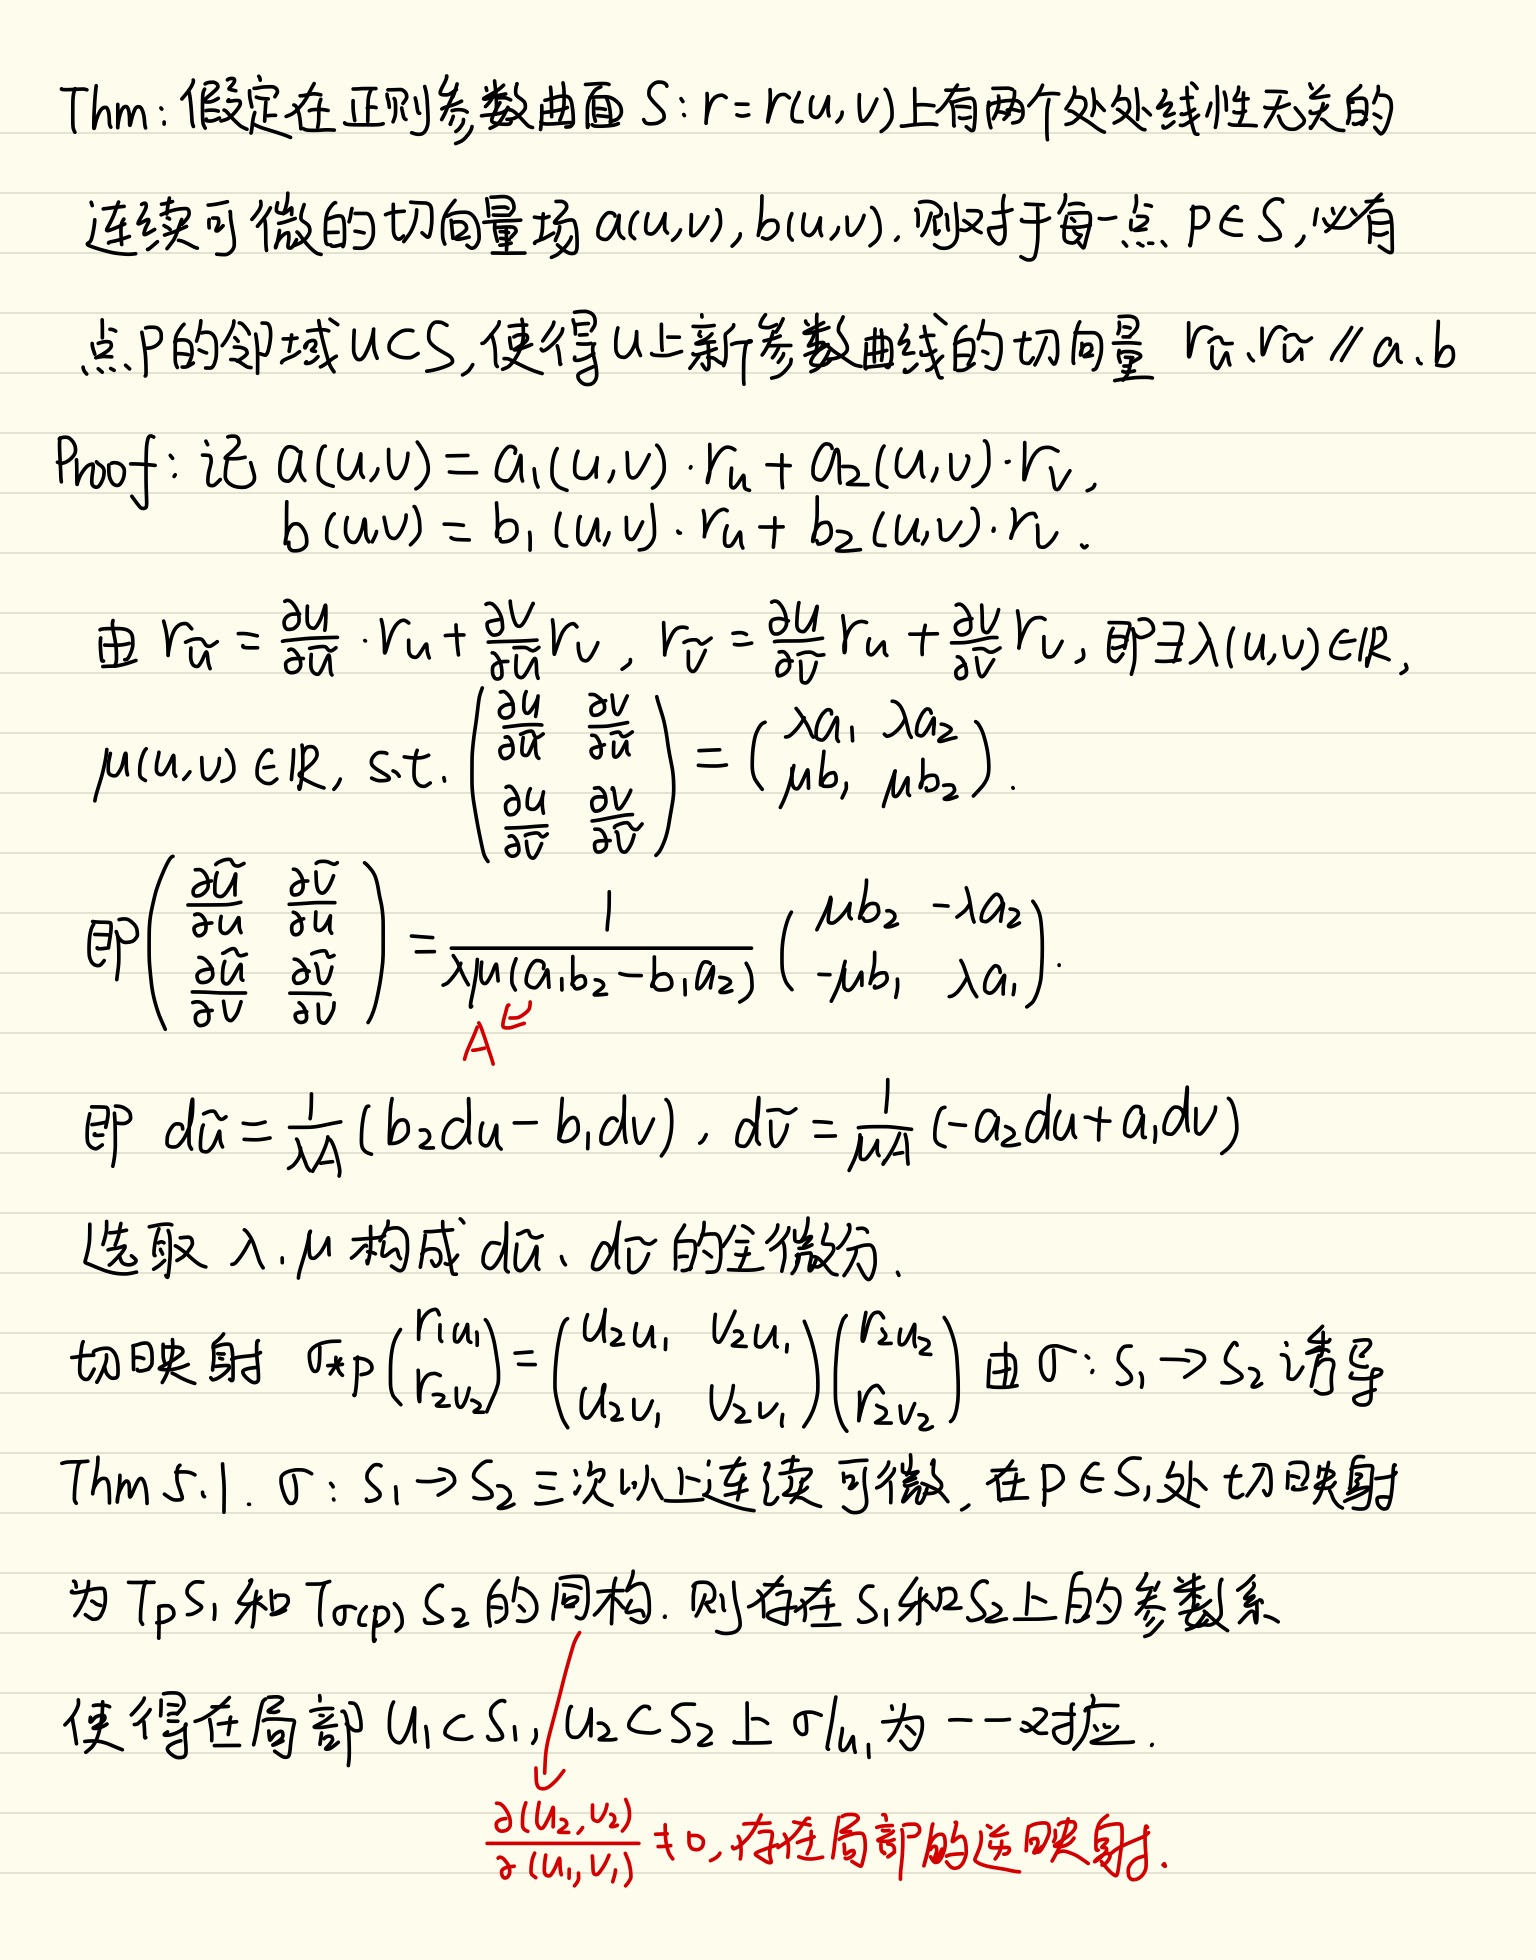 Thm: 假定在正则参数曲面 S: r = r(u,v)上有两个处处线性无关的
连续可微的切向量场 a(u,v), b(u,v). 则对于每一点 p∈S, 必有
点p的邻域 U⊂S, 使得U上新参数曲线的切向量 r_ũ、r_ũ // a、b
Proof: 记 a(u,v) = a₁(u,v)·r_u + a₂(u,v)·r_v,
b(u,v) = b₁(u,v)·r_u + b₂(u,v)·r_v.
由 r_ũ = ∂u/∂ũ · r_u + ∂v/∂ũ r_v, r_ṽ = ∂u/∂ṽ r_u + ∂v/∂ṽ r_v, 即∃λ(u,v)∈ℝ,
μ(u,v)∈ℝ, s.t. (∂u/∂ũ ∂v/∂ũ; ∂u/∂ṽ ∂v/∂ṽ) = (λa₁ λa₂; μb₁ μb₂).
即 (∂ũ/∂u ∂ṽ/∂u; ∂ũ/∂v ∂ṽ/∂v) = 1/(λμ(a₁b₂-b₁a₂)) (μb₂ -λa₂; -μb₁ λa₁).
A ⇐
即 dũ = 1/(λA) (b₂du - b₁dv), dṽ = 1/(μA) (-a₂du + a₁dv)
选取 λ、μ 构成 dũ、dṽ 的全微分.
切映射 σ_*p (r₁u₁; r₂v₂) = (u₂u₁ v₂u₁; u₂v₁ v₂v₁)(r₂u₂; r₂v₂) 由 σ: S₁→S₂ 诱导
Thm 5.1. σ: S₁→S₂ 三次以上连续可微, 在 p∈S₁处切映射
为 T_pS₁ 和 T_σ(p) S₂ 的同构. 则存在 S₁和S₂上的参数系
使得在局部 U₁⊂S₁, U₂⊂S₂ 上 σ|_U₁ 为一一对应.
∂(u₂,v₂)/∂(u₁,v₁) ≠ 0, 存在局部的逆映射.